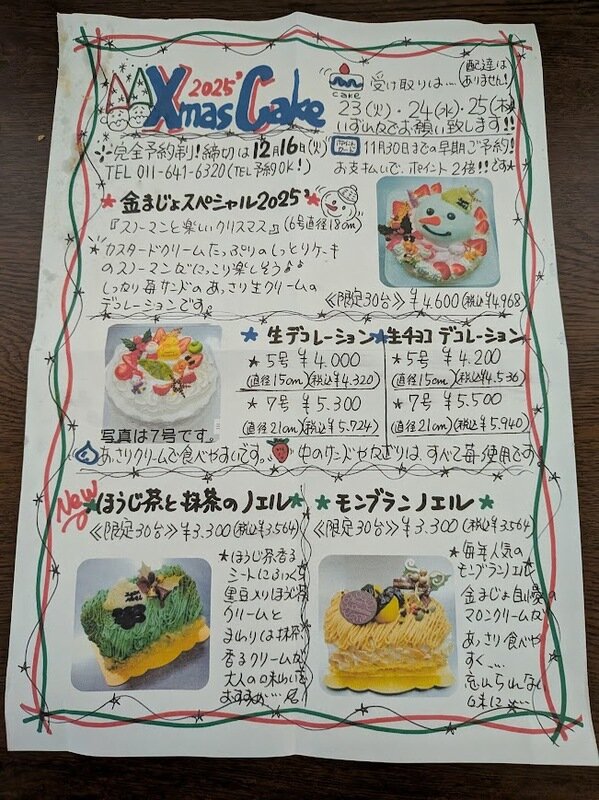 2025'
Xmas Cake
cake
受け取りは…(配達はありません!)
23(火)・24(水)・25(木)
いずれかでお願い致します!!
完全予約制!締切は12月16日(火)
TEL 011-641-6320 (TEL予約OK!)
ポイントカード 11月30日までの早期ご予約!
お支払いで、ポイント2倍!!です
★金まじょスペシャル2025'
『スノーマンと楽しいクリスマス』(6号直径18cm)
カスタードクリームたっぷりのしっとりケーキ
のスノーマンがにっこり楽しそう♪
しっかり苺サンドのあっさり生クリームの
デコレーションです。
《限定30台》¥4.600(税込¥4.968)
★生デコレーション
★5号 ¥4.000
(直径15cm)(税込¥4.320)
★7号 ¥5.300
(直径21cm)(税込¥5.724)
★生チョコデコレーション
★5号 ¥4.200
(直径15cm)(税込¥4.536)
★7号 ¥5.500
(直径21cm)(税込¥5.940)
写真は7号です。
あっさりクリームで食べやすいです。
中のサンドやなぎりは、すべて苺使用です
New
ほうじ茶と抹茶のノエル★
《限定30台》¥3.300(税込¥3.564)
★ほうじ茶香る
シートにふっくら
黒豆入りほうじ茶
クリームと
まわりは抹茶
香るクリームが
大人の味わいで
おすすめ…
★モンブランノエル★
《限定30台》¥3.300(税込¥3.564)
★毎年人気の
モンブランノエル
金まじょ自慢の
マロンクリームが
あっさり食べや
すく…
忘れられない
味に…